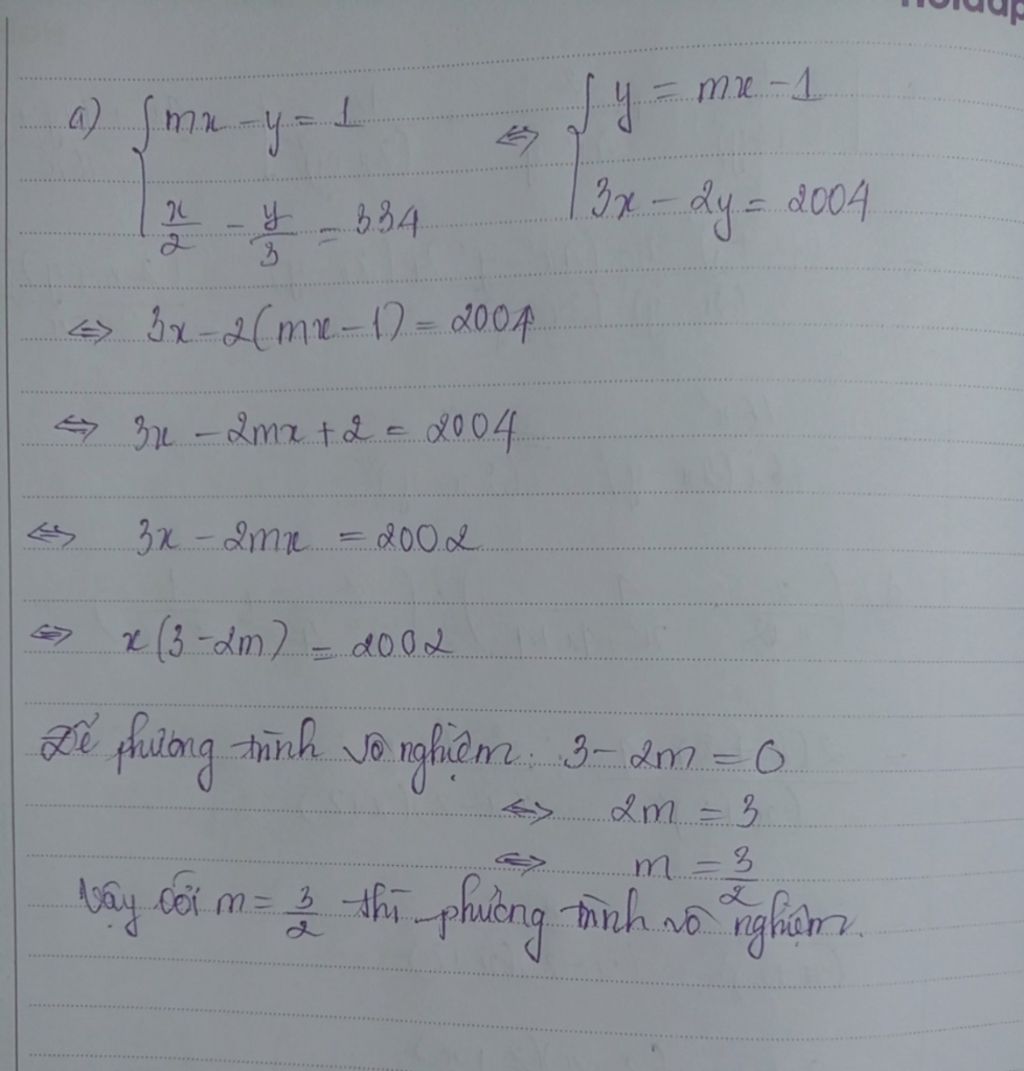 a) { mx - y = 1 ⇔ { y = mx - 1
x/2 - y/3 = 334 3x - 2y = 2004
⇔ 3x - 2(mx - 1) = 2004
⇔ 3x - 2mx + 2 = 2004
⇔ 3x - 2mx = 2002
⇔ x(3 - 2m) = 2002
Để phương trình vô nghiệm: 3 - 2m = 0
⇔ 2m = 3
⇔ m = 3/2
Vậy với m = 3/2 thì phương trình vô nghiệm.